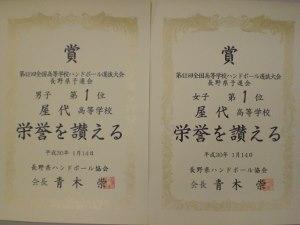 賞
第41回全国高等学校ハンドボール選抜大会
長野県予選会
男子 第1位
屋代高等学校
栄誉を讃える
平成30年 1月14日
長野県ハンドボール協会
会長 青木 崇
賞
第41回全国高等学校ハンドボール選抜大会
長野県予選会
女子 第1位
屋代高等学校
栄誉を讃える
平成30年 1月14日
長野県ハンドボール協会
会長 青木 崇